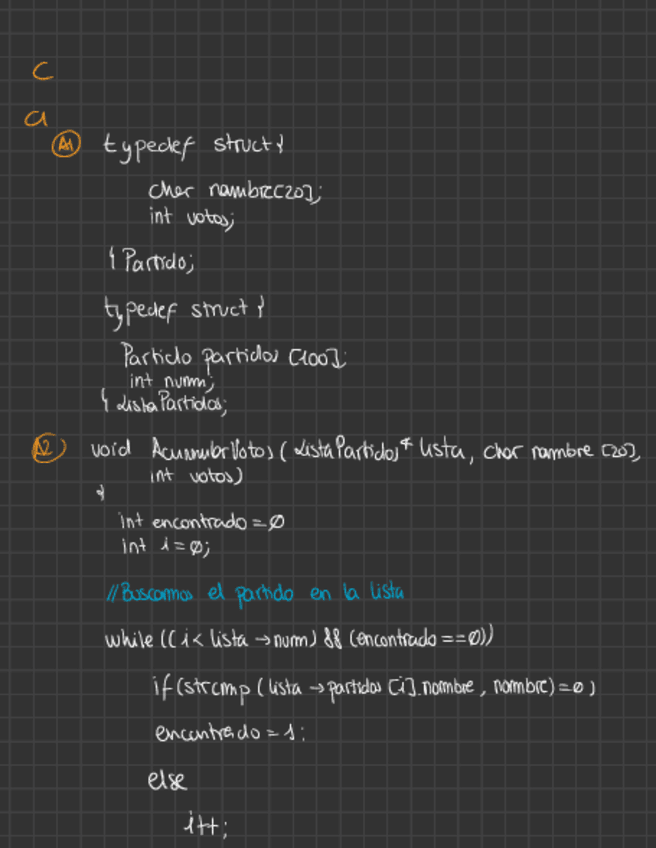 C
a
A1 typedef struct {
char nombre[20];
int votos;
} Partido;
typedef struct {
Partido partidos [100];
int num;
} ListaPartidos;
A2) void AcumularVotos ( ListaPartidos* lista, char nombre [20],
int votos)
{
int encontrado = 0
int i = 0;
//Buscamos el partido en la lista
while ((i < lista → num) && (encontrado == 0))
if (strcmp ( lista → partidos [i].nombre , nombre) = 0 )
encontrado = 1;
else
i++;